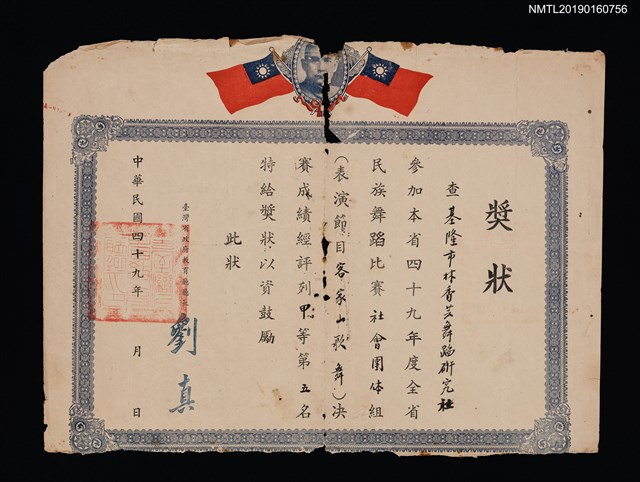 NMTL20190160756
獎狀
查基隆市林香芸舞蹈研究社
參加本省四十九年度全省
民族舞蹈比賽社會團体組
(表演節目客家山歌舞)決
賽成績經評列甲等第五名
特給獎狀以資鼓勵
此狀
臺灣省政府教育廳廳長
劉真
中華民國四十九年 月 日